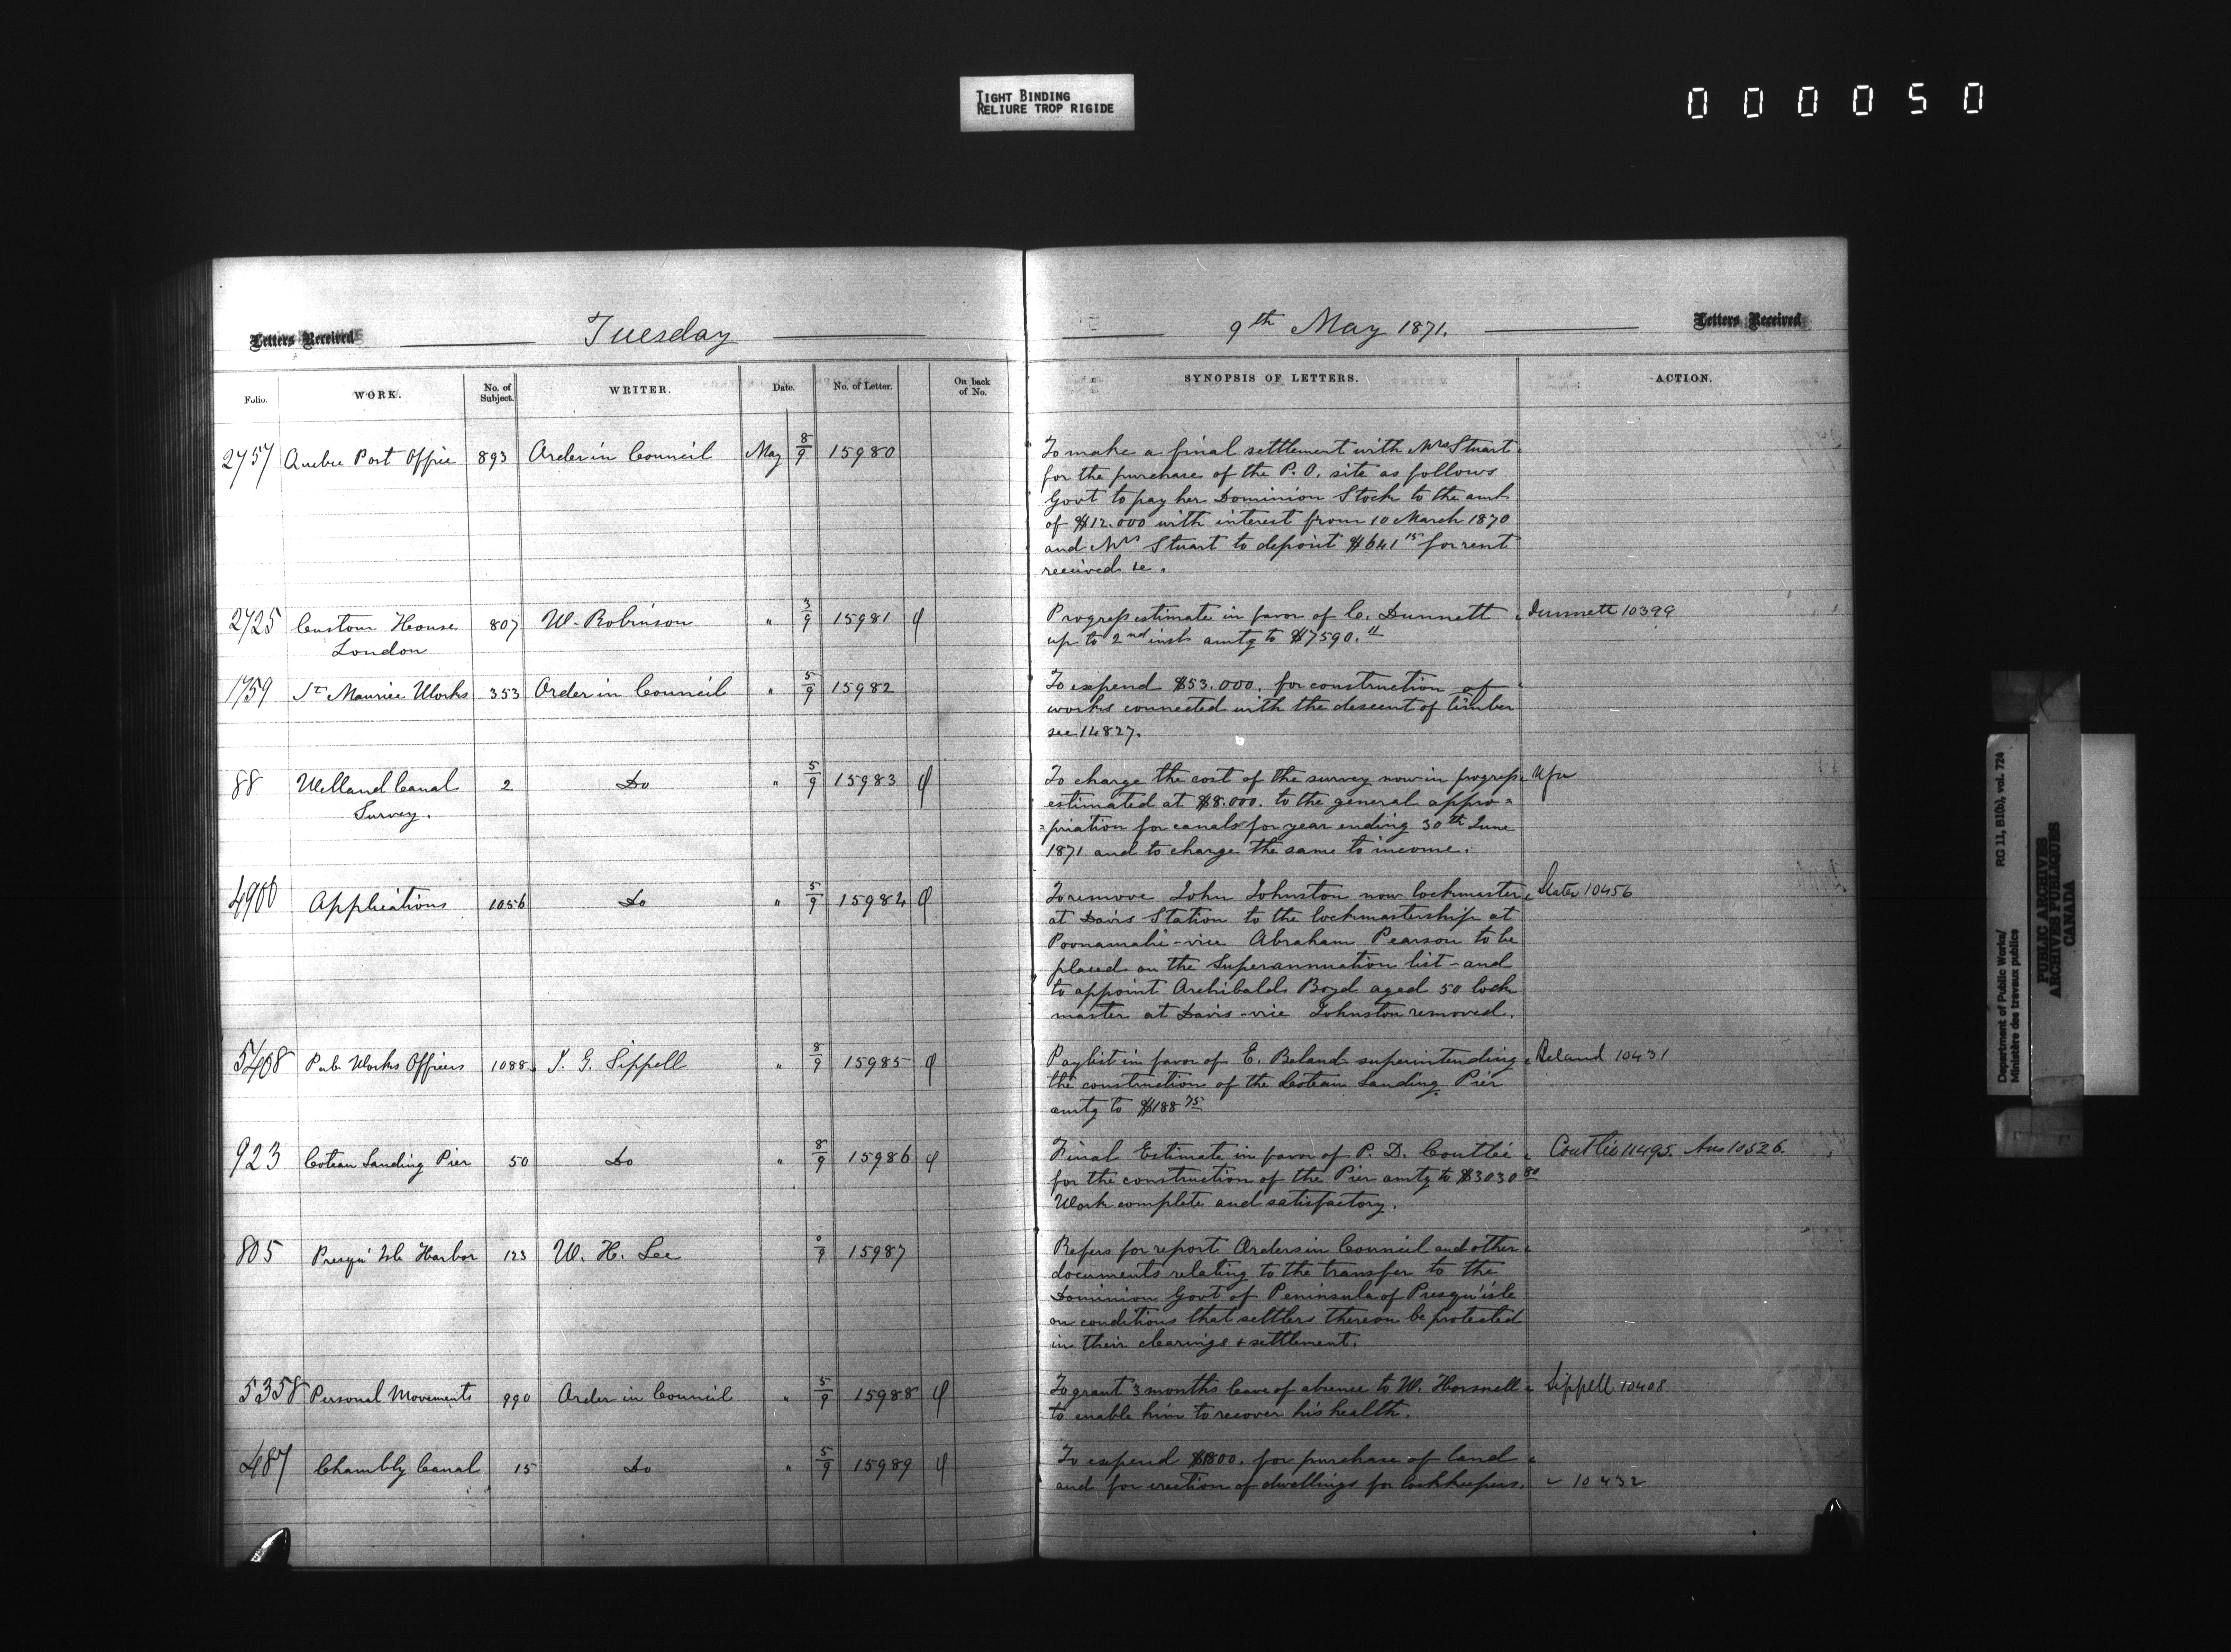 TIGHT BINDING
RELIURE TROP RIGIDE
000050
Letters Received
Tuesday
9th May 1871.
Letters Received
Folio. WORK. No. of Subject. WRITER. Date. No. of Letter. On back of No. SYNOPSIS OF LETTERS. ACTION.
2757 Quebec Post Office 893 Order in Council May 8/9 15980 To make a final settlement with Mrs Stuart
for the purchase of the P.O. site as follows
Govt to pay her Dominion Stock to the amt
of $12.000 with interest from 10 March 1870
and Mrs Stuart to deposit $641 15 for rent
received &c.
2725 Custom House 807 W. Robinson " 3/9 15981 φ Progress estimate in favor of C. Dunnett Dunnett 10399
London up to 2nd inst amtg to $7590. "
1759 St Maurice Works 353 Order in Council " 5/9 15982 To expend $53.000. for construction of
works connected with the descent of timber
see 14827.
88 Welland Canal 2 Do " 5/9 15983 φ To charge the cost of the survey now in progress
Survey. estimated at $8.000. to the general appro=
=priation for canals for year ending 30th June
1871 and to charge the same to income.
4900 Applications 1056 Do " 5/9 15984 φ To remove John Johnston now lockmaster Slater 10456
at Davis Station to the lockmastership at
Poonamalie - vice Abraham Pearson to be
placed on the Superannuation list - and
to appoint Archibald Boyd aged 50 lock
master at Davis - vice Johnston removed.
5408 Pub. Works Officers 1088 J. G. Sippell " 8/9 15985 φ Paylist in favor of E. Beland superintending Beland 10431
the construction of the Coteau Landing Pier
amtg to $188 75
923 Coteau Landing Pier 50 Do " 8/9 15986 φ Final Estimate in favor of P. D. Couttie Couttie 11495. Ans 10526.
for the construction of the Pier amtg to $3030 80
Work complete and satisfactory.
805 Presqu' Isle Harbor 123 W. H. Lee 0/9 15987 Refers for report Orders in Council and other
documents relating to the transfer to the
Dominion Govt of Peninsula of Presqu'isle
on conditions that settlers thereon be protected
in their clearings & settlement.
5358 Personal Movements 990 Order in Council " 5/9 15988 φ To grant 3 months leave of absence to W. Horsnell Sippell 10408
to enable him to recover his health.
487 Chambly Canal 15 Do " 5/9 15989 φ To expend $1800. for purchase of land
and for erection of dwellings for lockkeepers. 10432
Department of Public Works/ RG 11, B1(b), vol. 724
Ministère des travaux publics
PUBLIC ARCHIVES
ARCHIVES PUBLIQUES
CANADA